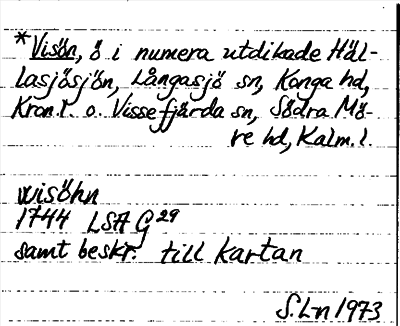 *Visön, ö i numera utdikade Häl-
lasjösjön, Långasjö sn, Konga hd,
Kron.l. o. Vissefjärda sn, Södra Mö-
re hd, Kalm.l.
wisöhn
1744 LSA G 29
samt beskr. till kartan
S.L-n 1973